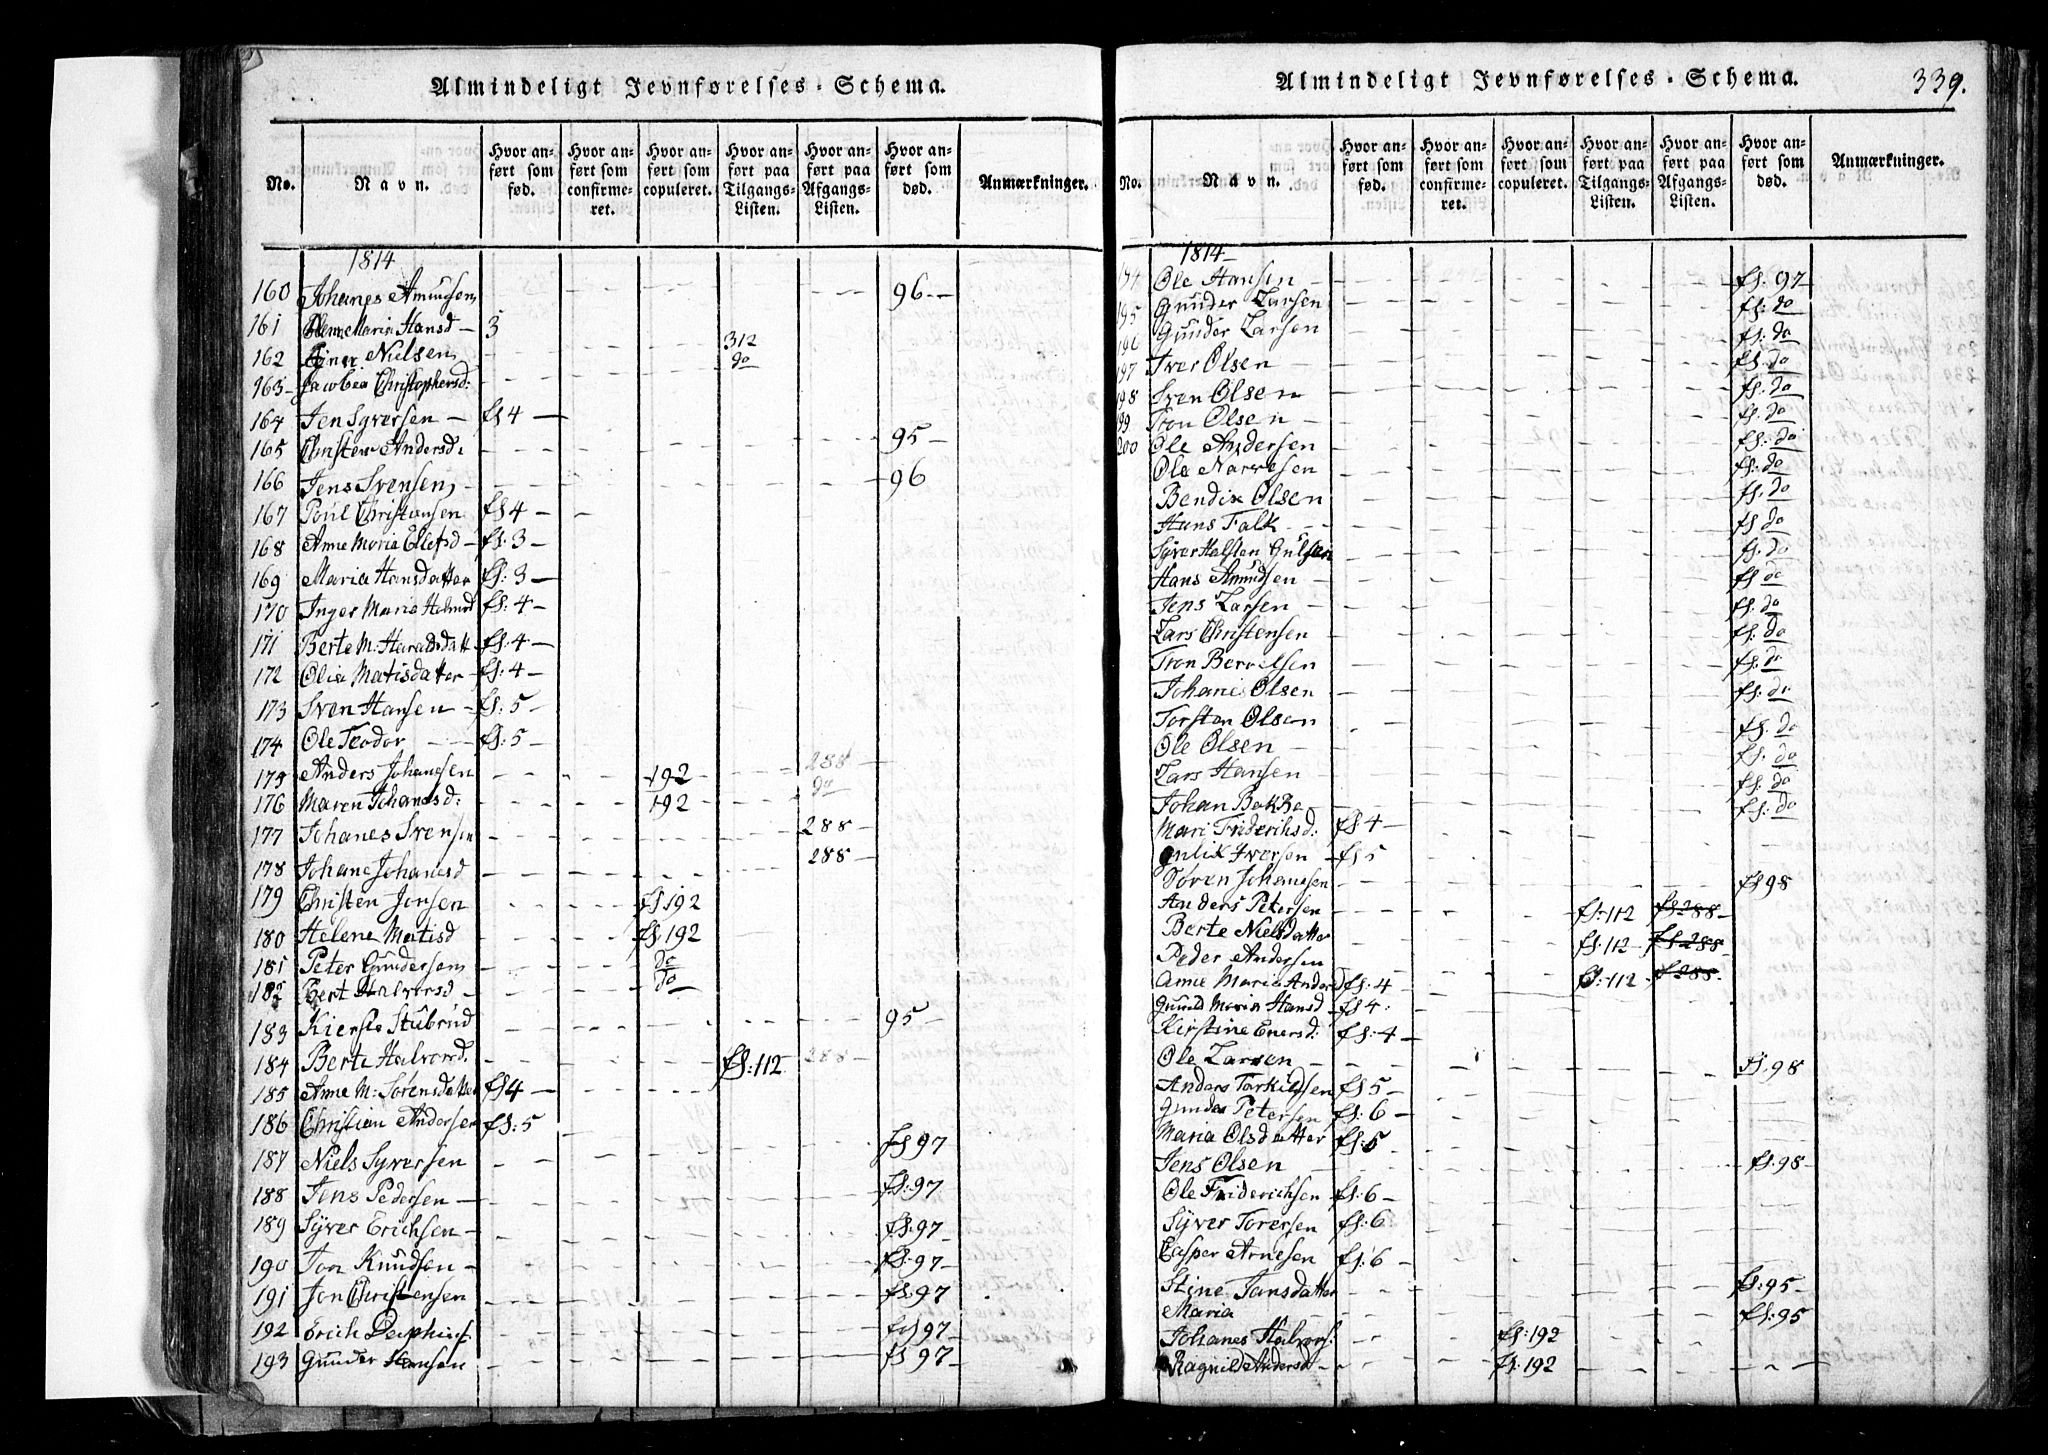 Almindeligt Jevnførelses-Schema.
No. Navn. Hvor anført som fød. Hvor anført som confirmeret. Hvor anført som copuleret. Hvor anført paa Tilgangs-Listen. Hvor anført paa Afgangs-Listen. Hvor anført som død. Anmærkninger.
1814
160 Johanes Amundsen 96
161 Maria Hansd 3
162 Nielsen 312
163 Jacobea Christophersd: do
164 Jen Syversen fs 4
165 Christen Andersd: 95
166 Jens Svensen 96
167 Poul Christiansen fs 4
168 Anne Maria Ellefsd fs: 3
169 Maria Hansdatter fs: 3
170 Inger Maria fs: 4
171 Berte M: Haraldsdatt fs: 4
172 Olia Matisdatter fs: 4
173 Sven Hansen fs: 5
174 Ole Teodor fs: 5
175 Anders Johanesen 192 288
176 Maren Johanesd: 192 do
177 Johanes Svensen 288
178 Johane Johanesd 288
179 Christen Jensen fs 192
180 Helene Matisd fs 192
181 Peter Gundersen do
182 Bert Halvorsd do
183 Kierste Stubrud 95
184 Berte Halvord. fs: 112 288
185 Anne M: Sørensdatter fs 4
186 Christian Andersen fs: 5
187 Niels Syversen fs 97
188 Jens Pedersen fs: 97
189 Syver Erichsen fs. 97
190 Tor Knudsen fs: 97
191 Jon Christensen fs: 97
192 Erich fs 97
193 Gunder Hansen fs 97
Almindeligt Jevnførelses-Schema. 339.
No. Navn. Hvor anført som fød. Hvor anført som confirmeret. Hvor anført som copuleret. Hvor anført paa Tilgangs-Listen. Hvor anført paa Afgangs-Listen. Hvor anført som død. Anmærkninger.
1814
194 Ole Hansen fs. 97
195 Gunder Larsen fs: do
196 Gunder Larsen fs: do
197 Iver Olsen fs: do
198 Sven Olsen fs: do
199 Tron Olsen fs: do
200 Ole Andersen fs: do
Ole Narvesen fs: do
Bendix Olsen fs: do
Hans Falk fs do
Syver Halsten Gulsen fs: do
Hans Amundsen fs do
Jens Larsen fs: do
Lars Christensen fs: do
Tron Bervelsen fs: do
Johanis Olsen fs: do
Torsten Olsen fs: do
Ole Olsen fs: do
Lars Hansen fs: do
Johan Bakke fs: do
Mari Friderichsd: fs 4
Gulik Iversen fs 5
Søren Johanesen fs 98
Anders Petersen fs: 112 fs 288
Berte Nielsdatter fs. 112 fs 288
Peder Andersen fs: 112 fs 288
Anne Maria Andersd fs: 4
Gunild Maria Hansd fs 4:
Kirstine Enersd: fs: 4
Ole Larsen fs. 98
Anders Tarkildsen fs 5
Gunder Petersen fs: 6
Maria Olsdatter fs: 5
Jens Olsen fs. 98
Ole Friderichsen fs. 6
Syver Toresen fs: 6
Casper Arnesen fs: 6
Stine Jansdatter fs: 95
Maria fs: 95
Johanes Halvors: fs: 192
Ragnild Andersd fs: 192